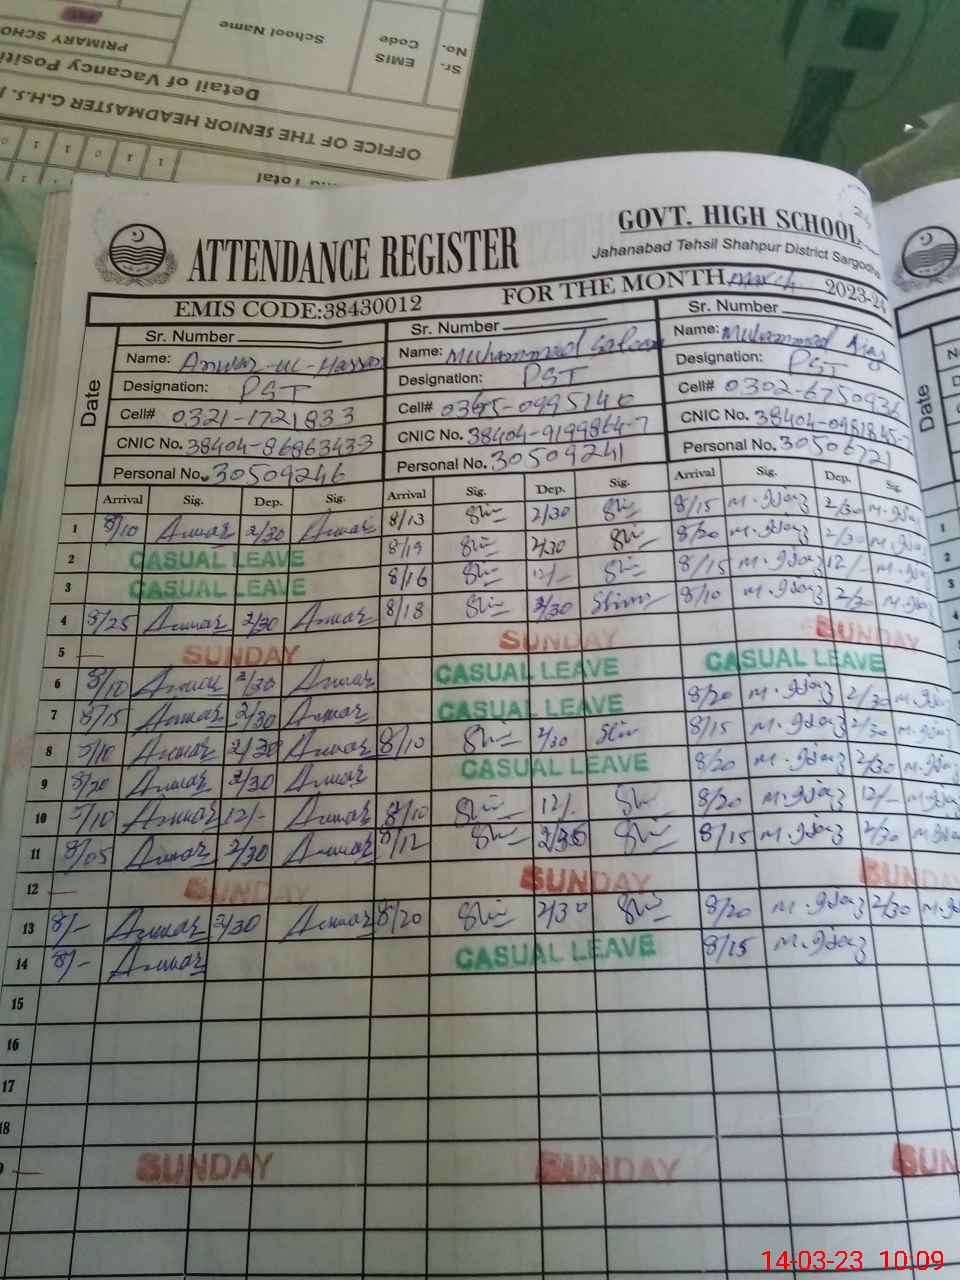 Sr. No. EMIS Code School Name
PRIMARY SCHO
Detail of Vacancy Positi
OFFICE OF THE SENIOR HEADMASTER G.H.S.
1 1 0 1 1
Total
ATTENDANCE REGISTER
GOVT. HIGH SCHOOL
Jahanabad Tehsil Shahpur District Sargodha
EMIS CODE:38430012 FOR THE MONTH March 2023-24
Date
Sr. Number Sr. Number Sr. Number
Name: Anwar-ul-Hassan Name: Muhammad Name: Muhammad
Designation: PST Designation: PST Designation: PST
Cell# 0321-1721833 Cell# 0995140 Cell# 0302-675093
CNIC No. 38404-8686343-3 CNIC No. 38404-9199864-7 CNIC No. 38404-0981845-7
Personal No. 30509246 Personal No. 30509241 Personal No. 30506721
Arrival Sig. Dep. Sig. Arrival Sig. Dep. Sig. Arrival Sig. Dep. Sig.
1 8/10 Anwar 2/30 Anwar 8/13 2/30 8/15 M. Ijaz 2/30 M. Ijaz
2 CASUAL LEAVE 8/19 2/30 8/20 M. Ijaz 2/30 M. Ijaz
3 CASUAL LEAVE 8/16 12/- 8/15 M. Ijaz 12/- M. Ijaz
4 8/25 Anwar 2/30 Anwar 8/18 2/30 8/10 M. Ijaz 2/30 M. Ijaz
5 SUNDAY SUNDAY SUNDAY
6 8/10 Anwar 2/30 Anwar CASUAL LEAVE CASUAL LEAVE
7 8/15 Anwar 2/30 Anwar CASUAL LEAVE 8/20 M. Ijaz 2/30 M. Ijaz
8 8/10 Anwar 2/30 Anwar 8/10 2/30 8/15 M. Ijaz 2/30 M. Ijaz
9 8/20 Anwar 2/30 Anwar CASUAL LEAVE 8/20 M. Ijaz 2/30 M. Ijaz
10 8/10 Anwar 12/- Anwar 8/10 12/- 8/20 M. Ijaz 12/- M. Ijaz
11 8/05 Anwar 2/30 Anwar 8/12 2/30 8/15 M. Ijaz 2/30 M. Ijaz
12 SUNDAY SUNDAY SUNDAY
13 8/- Anwar 2/30 Anwar 8/20 2/30 8/20 M. Ijaz 2/30 M. Ijaz
14 8/- Anwar CASUAL LEAVE 8/15 M. Ijaz
15
16
17
18
SUNDAY SUNDAY SUN
14-03-23 10:09